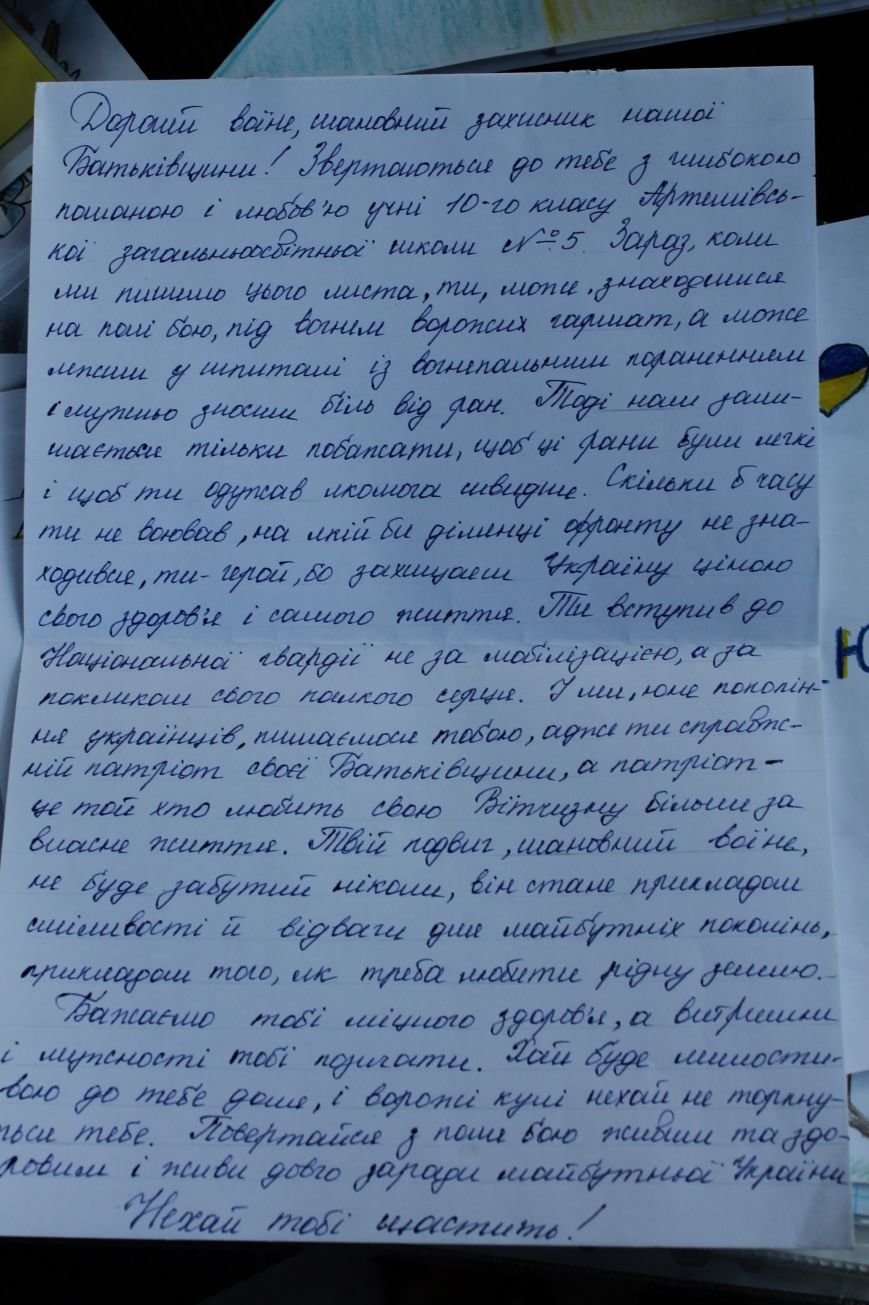 Дорогий воїне, шановний захисник нашої
Батьківщини! Звертаються до тебе з глибокою
пошаною і любов'ю учні 10-го класу Артемівсь-
кої загальноосвітньої школи №5. Зараз, коли
ми пишемо цього листа, ти, може, знаходишся
на полі бою, під вогнем ворожих гармат, а може
лежиш у шпиталі із вогнепальним пораненням
і мужньо зносиш біль від ран. Тоді нам зали-
шається тільки побажати, щоб ці рани були легкі
і щоб ти одужав якомога швидше. Скільки б часу
ти не воював, на якій би ділянці фронту не зна-
ходився, ти - герой, бо захищаєш Україну ціною
свого здоров'я і самого життя. Ти вступив до
Національної гвардії не за мобілізацією, а за
покликом свого палкого серця. І ми, юне поколін-
ня українців, пишаємося тобою, адже ти справж-
ній патріот своєї Батьківщини, а патріот -
це той хто любить свою Вітчизну більше за
власне життя. Твій подвиг, шановний воїне,
не буде забутий ніколи, він стане прикладом
сміливості й відваги для майбутніх поколінь,
прикладом того, як треба любити рідну землю.
Бажаємо тобі міцного здоров'я, а витримки
і мужності тобі позичати. Хай буде милости-
вою до тебе доля, і ворожі кулі нехай не торкну-
ться тебе. Повертайся з поля бою живим та здо-
ровим і живи довго заради майбутньої України
Нехай тобі щастить!
Ю